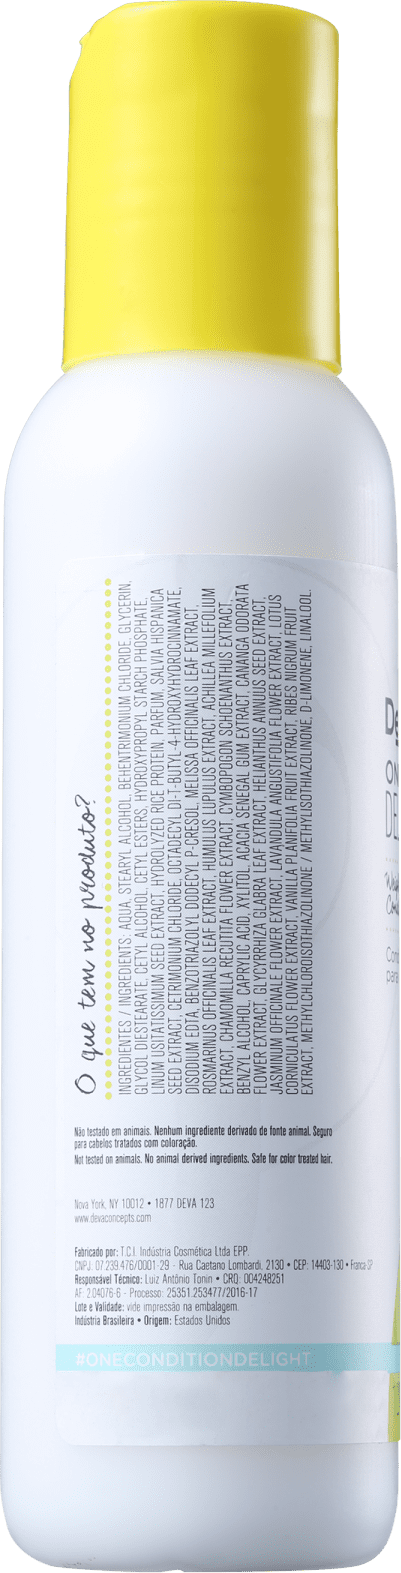 O que tem no produto?
INGREDIENTES / INGREDIENTS: AQUA, STEARYL ALCOHOL, BEHENTRIMONIUM CHLORIDE, GLYCERIN,
GLYCOL DIESTEARATE, CETYL ALCOHOL, CETYL ESTERS, HYDROXYPROPYL STARCH PHOSPHATE,
LINUM USITATISSIMUM SEED EXTRACT, HYDROLYZED RICE PROTEIN, PARFUM, SALVIA HISPANICA
SEED EXTRACT, CETRIMONIUM CHLORIDE, OCTADECYL DI-T-BUTYL-4-HYDROXYHYDROCINNAMATE,
DISODIUM EDTA, BENZOTRIAZOLYL DODECYL P-CRESOL, MELISSA OFFICINALIS LEAF EXTRACT,
ROSMARINUS OFFICINALIS LEAF EXTRACT, HUMULUS LUPULUS EXTRACT, ACHILLEA MILLEFOLIUM
EXTRACT, CHAMOMILLA RECUTITA FLOWER EXTRACT, CYMBOPOGON SCHOENANTHUS EXTRACT,
BENZYL ALCOHOL, CAPRYLIC ACID, XYLITOL, ACACIA SENEGAL GUM EXTRACT, CANANGA ODORATA
FLOWER EXTRACT, GLYCYRRHIZA GLABRA LEAF EXTRACT, HELIANTHUS ANNUUS SEED EXTRACT,
JASMINUM OFFICINALE FLOWER EXTRACT, LAVANDULA ANGUSTIFOLIA FLOWER EXTRACT, LOTUS
CORNICULATUS FLOWER EXTRACT, VANILLA PLANIFOLIA FRUIT EXTRACT, RIBES NIGRUM FRUIT
EXTRACT, METHYLCHLOROISOTHIAZOLINONE / METHYLISOTHIAZOLINONE, D-LIMONENE, LINALOOL.
Não testado em animais. Nenhum ingrediente derivado de fonte animal. Seguro
para cabelos tratados com coloração.
Not tested on animals. No animal derived ingredients. Safe for color treated hair.
Nova York, NY 10012 • 1877 DEVA 123
www.devaconcepts.com
Fabricado por: T.C.I. Indústria Cosmética Ltda EPP.
CNPJ: 07.239.476/0001-29 - Rua Caetano Lombardi, 2130 • CEP: 14403-130 • Franca-SP
Responsável Técnico: Luiz Antônio Tonin • CRQ: 004248251
AF: 2.04076-6 - Processo: 25351.253477/2016-17
Lote e Validade: vide impressão na embalagem.
Indústria Brasileira • Origem: Estados Unidos
#ONECONDITIONDELIGHT
De
ON
DE
Cond
para